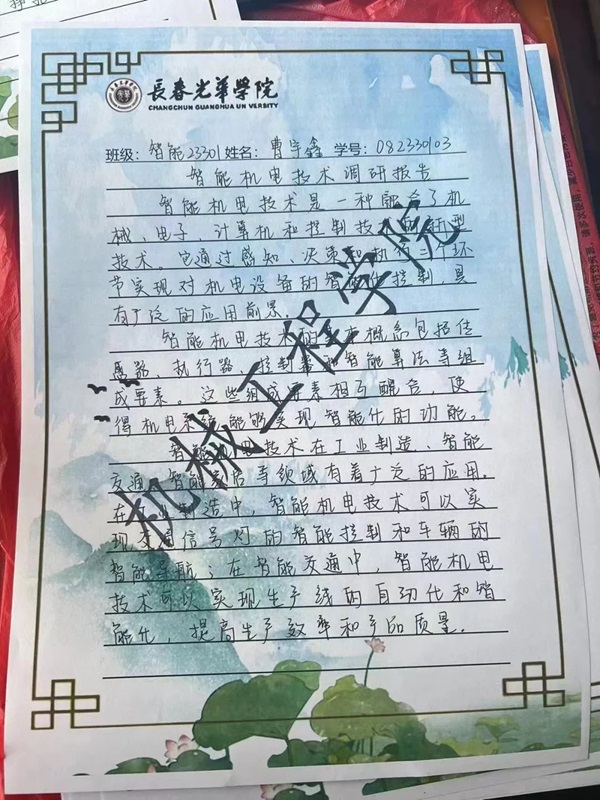 長春光華學院
CHANGCHUN GUANGHUA UN VERSITY
班级：智能23301 姓名：曹宇鑫 学号：082330103
智能机电技术调研报告
智能机电技术是一种融合了机
械、电子、计算机和控制技 新型
技术。它通过感知、决策和执行三个环
节实现对机电设备的智能化控制，具
有广泛的应用前景。
智能机电技术的 概念包括传
感器、执行器、控制器和智能算法等组
成要素。这些组成要素相互配合，使
得机电系统能够实现智能化的功能。
智能机电技术在工业制造、智能
交通、智能家居等领域有着广泛的应用。
在工业制造中，智能机电技术可以实
现交通信号灯的智能控制和车辆的
智能导航；在智能交通中，智能机电
技术可以实现生产线的自动化和智
能化，提高生产效率和产品质量。
机械工程学院